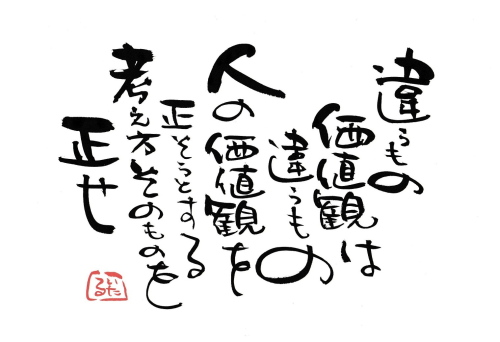 違うもの
価値観は
違うもの
人の価値観を
正そうとする
考え方そのものを
正せ